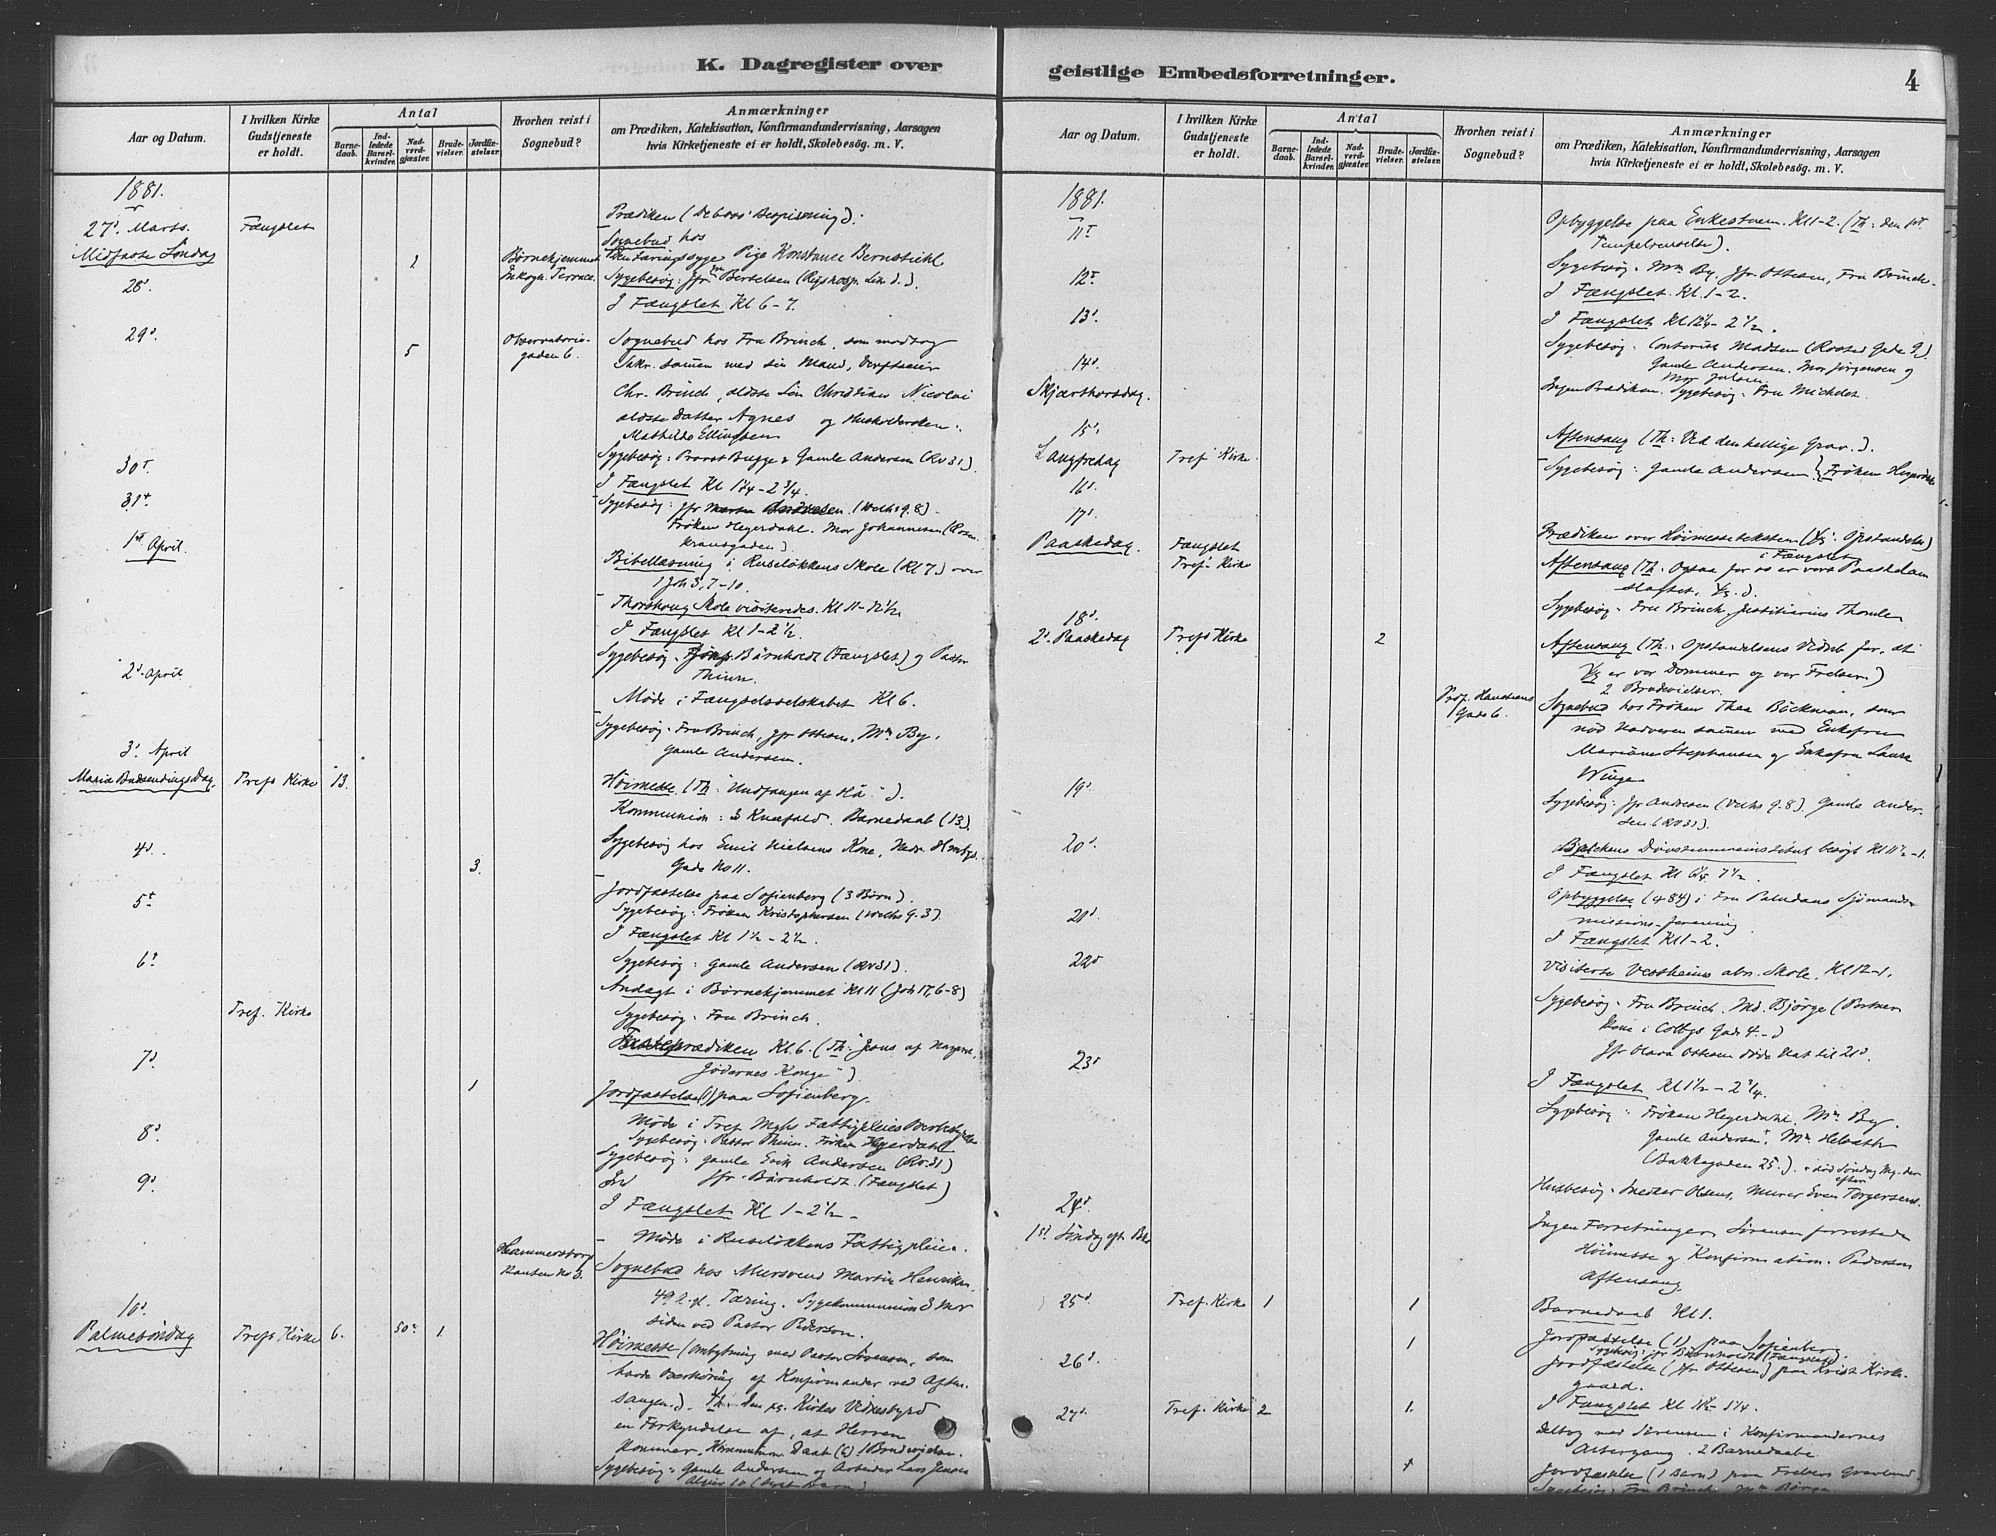 K. Dagregister over
Aar og Datum.
I hvilken Kirke Gudstjeneste er holdt.
Antal
Barnedaab.
Indledede Barselkvinder.
Nadverdgjæster.
Brudevielser.
Jordfæstelser.
Hvorhen reist i Sognebud?
Anmærkninger
om Prædiken, Katekisation, Konfirmandundervisning, Aarsagen
hvis Kirketjeneste ei er holdt, Skolebesøg. m. V.
1881.
27d. Marts. Fængslet Prædiken
Midfaste Søndag
Sognebud hos
1 Børnehjemmet Pige Konstance
Inkogn. Terrace. Sygebesøg: Jfr Bertelsen
28d.
I Fængslet Kl 6-7.
29d. 5 Observatoriegaden 6. Sognebud hos Fru Brinch, som modtog
Sakr. sammen med sin Mand, Verftseier
Chr. Brinch, ældste Søn Christian Nicolai
ældste Datter Agnes og Husholdersken:
Mathilde Ellingsen
30t. Sygebesøg: Provst Bugge & Gamle Andersen (Rv 31).
I Fængslet Kl 1 1/4 - 2 3/4.
31t Sygebesøg: Jfr (Welhs g. 8)
Frøken Heyerdahl. Mor Johannesen (Rosenkransgaden)
1st April.
Bibellæsning i Ruseløkkens Skole (Kl 7) over
1 Joh 3, 7-10.
Skole visiteredes. Kl 11-12 1/2
I Fængslet Kl 1-2 1/2.
Sygebesøg: Bärnholdt (Fængslet) og Pastor
Thinn.
2d. April
Møde i Fængselsselskabet Kl 6.
Sygebesøg: Fru Brinch, Jfr Ottesen, Mm By,
Gamle Andersen.
3d April
Maria Budskabs Dag. Trefs Kirke 13. Høimesse (Th: Undfangen af Hå).
Kommunion: 3 Knæfald. Barnedaab (13).
4d. Sygebesøg hos Emil Nielsens Kone,
3. Gade No 11.
Jordfæstelse paa Sofienberg (3 Børn).
5t Sygebesøg: Frøken Kristophersen (Welhs g. 3)
I Fængslet Kl 1 1/2 - 2 1/2.
6t Sygebesøg: Gamle Andersen (Rv 31).
Andagt i Børnehjemmet Kl 11 (Joh 17, 6-8)
Tref. Kirke Sygebesøg: Fru Brinch.
Fasteprædiken Kl. 6. (Th: Jesus af Nazaret,
7d. Jødernes Konge)
1 Jordfæstelse (1) paa Sofienberg.
Møde i Tref. Mghs Fattigpleies
8d. Sygebesøg: Pastor Thinn. Frøken Heyerdahl
Sygebesøg: Gamle Erik Andersen (Rv. 31)
9d. Jfr Bärnholdt. (Fængslet)
I Fængslet Kl 1-2 1/2
Møde i Ruseløkkens Fattigpleie.
Hammersborg No 3. Sognebud hos Mursvend Martin Henriksen
49 A. gl. Tæring. Sygekommunion
siden ved Pastor Pedersen.
10d.
Palmesøndag Trefs Kirke 6. 50 1. Høimesse (Ombytning med Pastor Sørensen, som
havde Overhøring af Konfirmander ved Aftensangen). Th: Den Kirkes Vidnesbyrd
en Forkyndelse af, at Herren
kommer. Kommunion Daab (6) 1 Brudevielse.
Sygebesøg: Gamle Andersen og Arbeider Lars Jensen
geistlige Embedsforretninger.
4
Aar og Datum.
I hvilken Kirke Gudstjeneste er holdt.
Antal
Barnedaab.
Indledede Barselkvinder.
Nadverdgjæster.
Brudevielser.
Jordfæstelser.
Hvorhen reist i Sognebud?
Anmærkninger
om Prædiken, Katekisation, Konfirmandundervisning, Aarsagen
hvis Kirketjeneste ei er holdt, Skolebesøg. m. V.
1881.
11t Opbyggelse paa Enkestuen. Kl 1-2. (Th: den 1st
Tempelrenselse).
12t Sygebesøg: Mm By, Jfr Ottesen, Fru Brinch.
I Fængslet. Kl. 1-2.
13d. I Fængslet Kl 12 1/4 - 2 1/2.
Sygebesøg: Madsen (Rosted Gade 9).
14d. Gamle Andersen. Mor Jørgensen og
Mor Julsen
Skjærthorsdag. Ingen Prædiken. Sygebesøg: Fru Michelet.
15d.
Langfredag Tref. Kirke. Aftensang (Th: Ved den hellige Grav.)
Sygebesøg: Gamle Andersen Frøken Heyerdahl
16d.
17d.
Paaskedag. Fængslet Prædiken over Høimesseteksten
i Fængslet
Tref. Kirke Aftensang (Th: Ogsaa for os er vort Paaskelam
slagtet,
18d. Sygebesøg: Fru Brinch, Justitiarius Thomle
2d. Paaskedag Trefs Kirke 2 Aftensang (Th: Opstandelsens Vidnb for, at
er vor Dommer og vor Frelser)
2 Brudevielser.
Prof. Hansteens Gade 6. Sognebud hos Frøken Thea Bøckman, som
nød Nadveren sammen med Enkefru
Mariane Stephansen og Enkefru Laura
Winge
19d. Sygebesøg: Jfr Andresen (Welhs g. 8). Gamle Andersen (Rv 31).
20d. Balchens Døvstummeinstitut besøgt Kl 11 1/2 - 1.
I Fængslet Kl 6 1/4 7 1/2.
21d Opbyggelse (484) i Fru Paludans Sjømandsmissions-forening
I Fængslet Kl 1-2.
22d Visiterte Vestheims alm. Skole. Kl 12-1.
Sygebesøg: Fru Brinch. Md. Bjørge
Kone i Colbjs Gade 4
Jfr Olava Ottesen døde Nat til 21d.
23d I Fængslet Kl 1 1/2 - 2 3/4.
Sygebesøg: Frøken Heyerdahl, Mm By.
Gamle Andersen,
(Bakkegaden 25.). + død Søndag
efter
24d. Husbesøg: Snedker Olsens, Murer Even Torgersens.
1st Søndag eft. Ingen Forretninger. Sørensen forrettede
Høimesse og Konfirmation. Pedersen
Aftensang.
25d Tref. Kirke 1 1 Barnedaab Kl 1.
1 Jordfæstelse (1) paa Sofienberg.
Sygebesøg: Jfr Bärnholdt (Fængslet)
26d. Jordfæstelse (Jfr Ottesen) paa Krist Kirkegaard.
27d Tref. Kirke 2 1. I Fængslet Kl
Deltog med Sørensen i Konfirmandernes
Altergang. 2 Barnedaabe
+ Jordfæstelse (1 Barn) paa Frelsers Gravlund.
Sygebesøg: Fru Brinch,